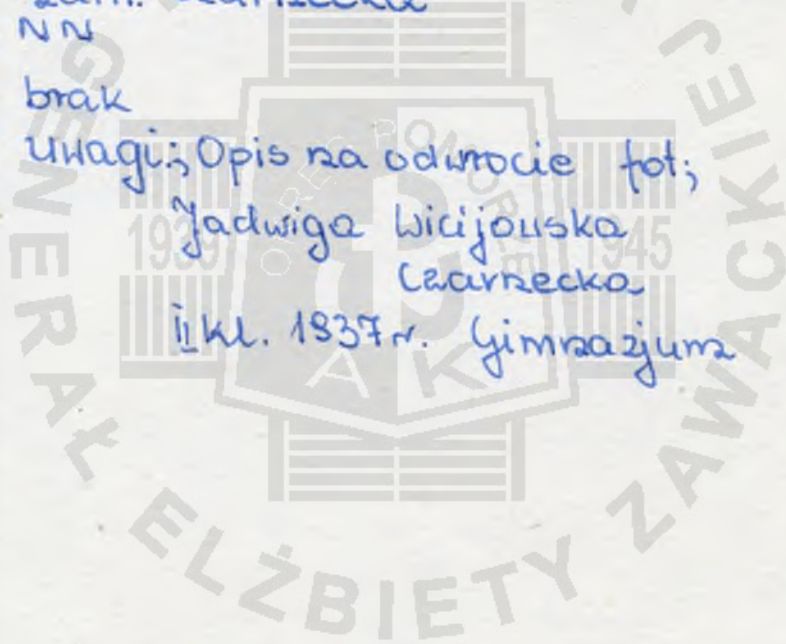 zam. Czarnecka
NN
brak
Uwagi:; Opis na odwrocie fot;
Jadwiga Wicijowska
Czarnecka
II kl. 1937 r. Gimnazjum
GENERAŁ ELŻBIETY ZAWACKIEJ
OKRĘG POMORZE
1939 1945
AK